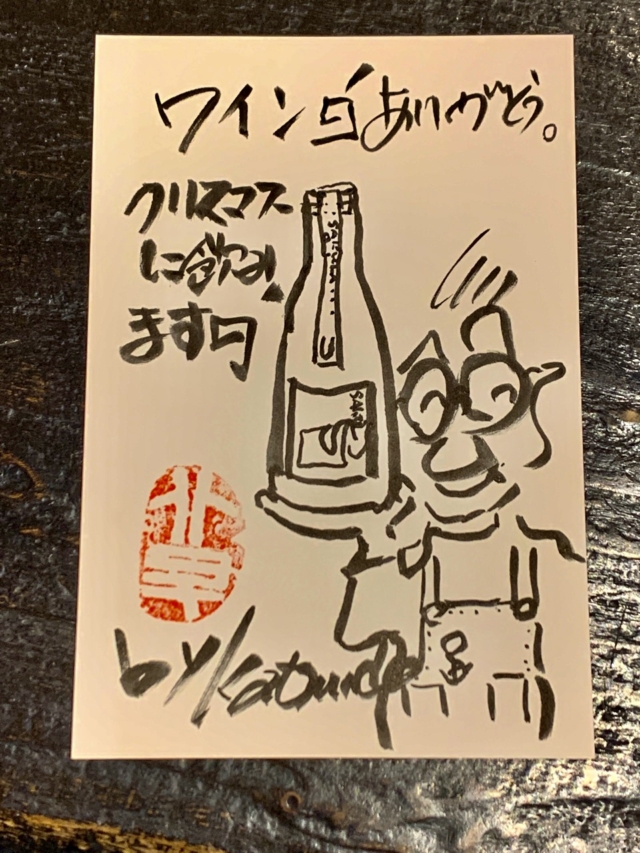 ワイン ありがとう。
クリスマス
に飲み
ます
by